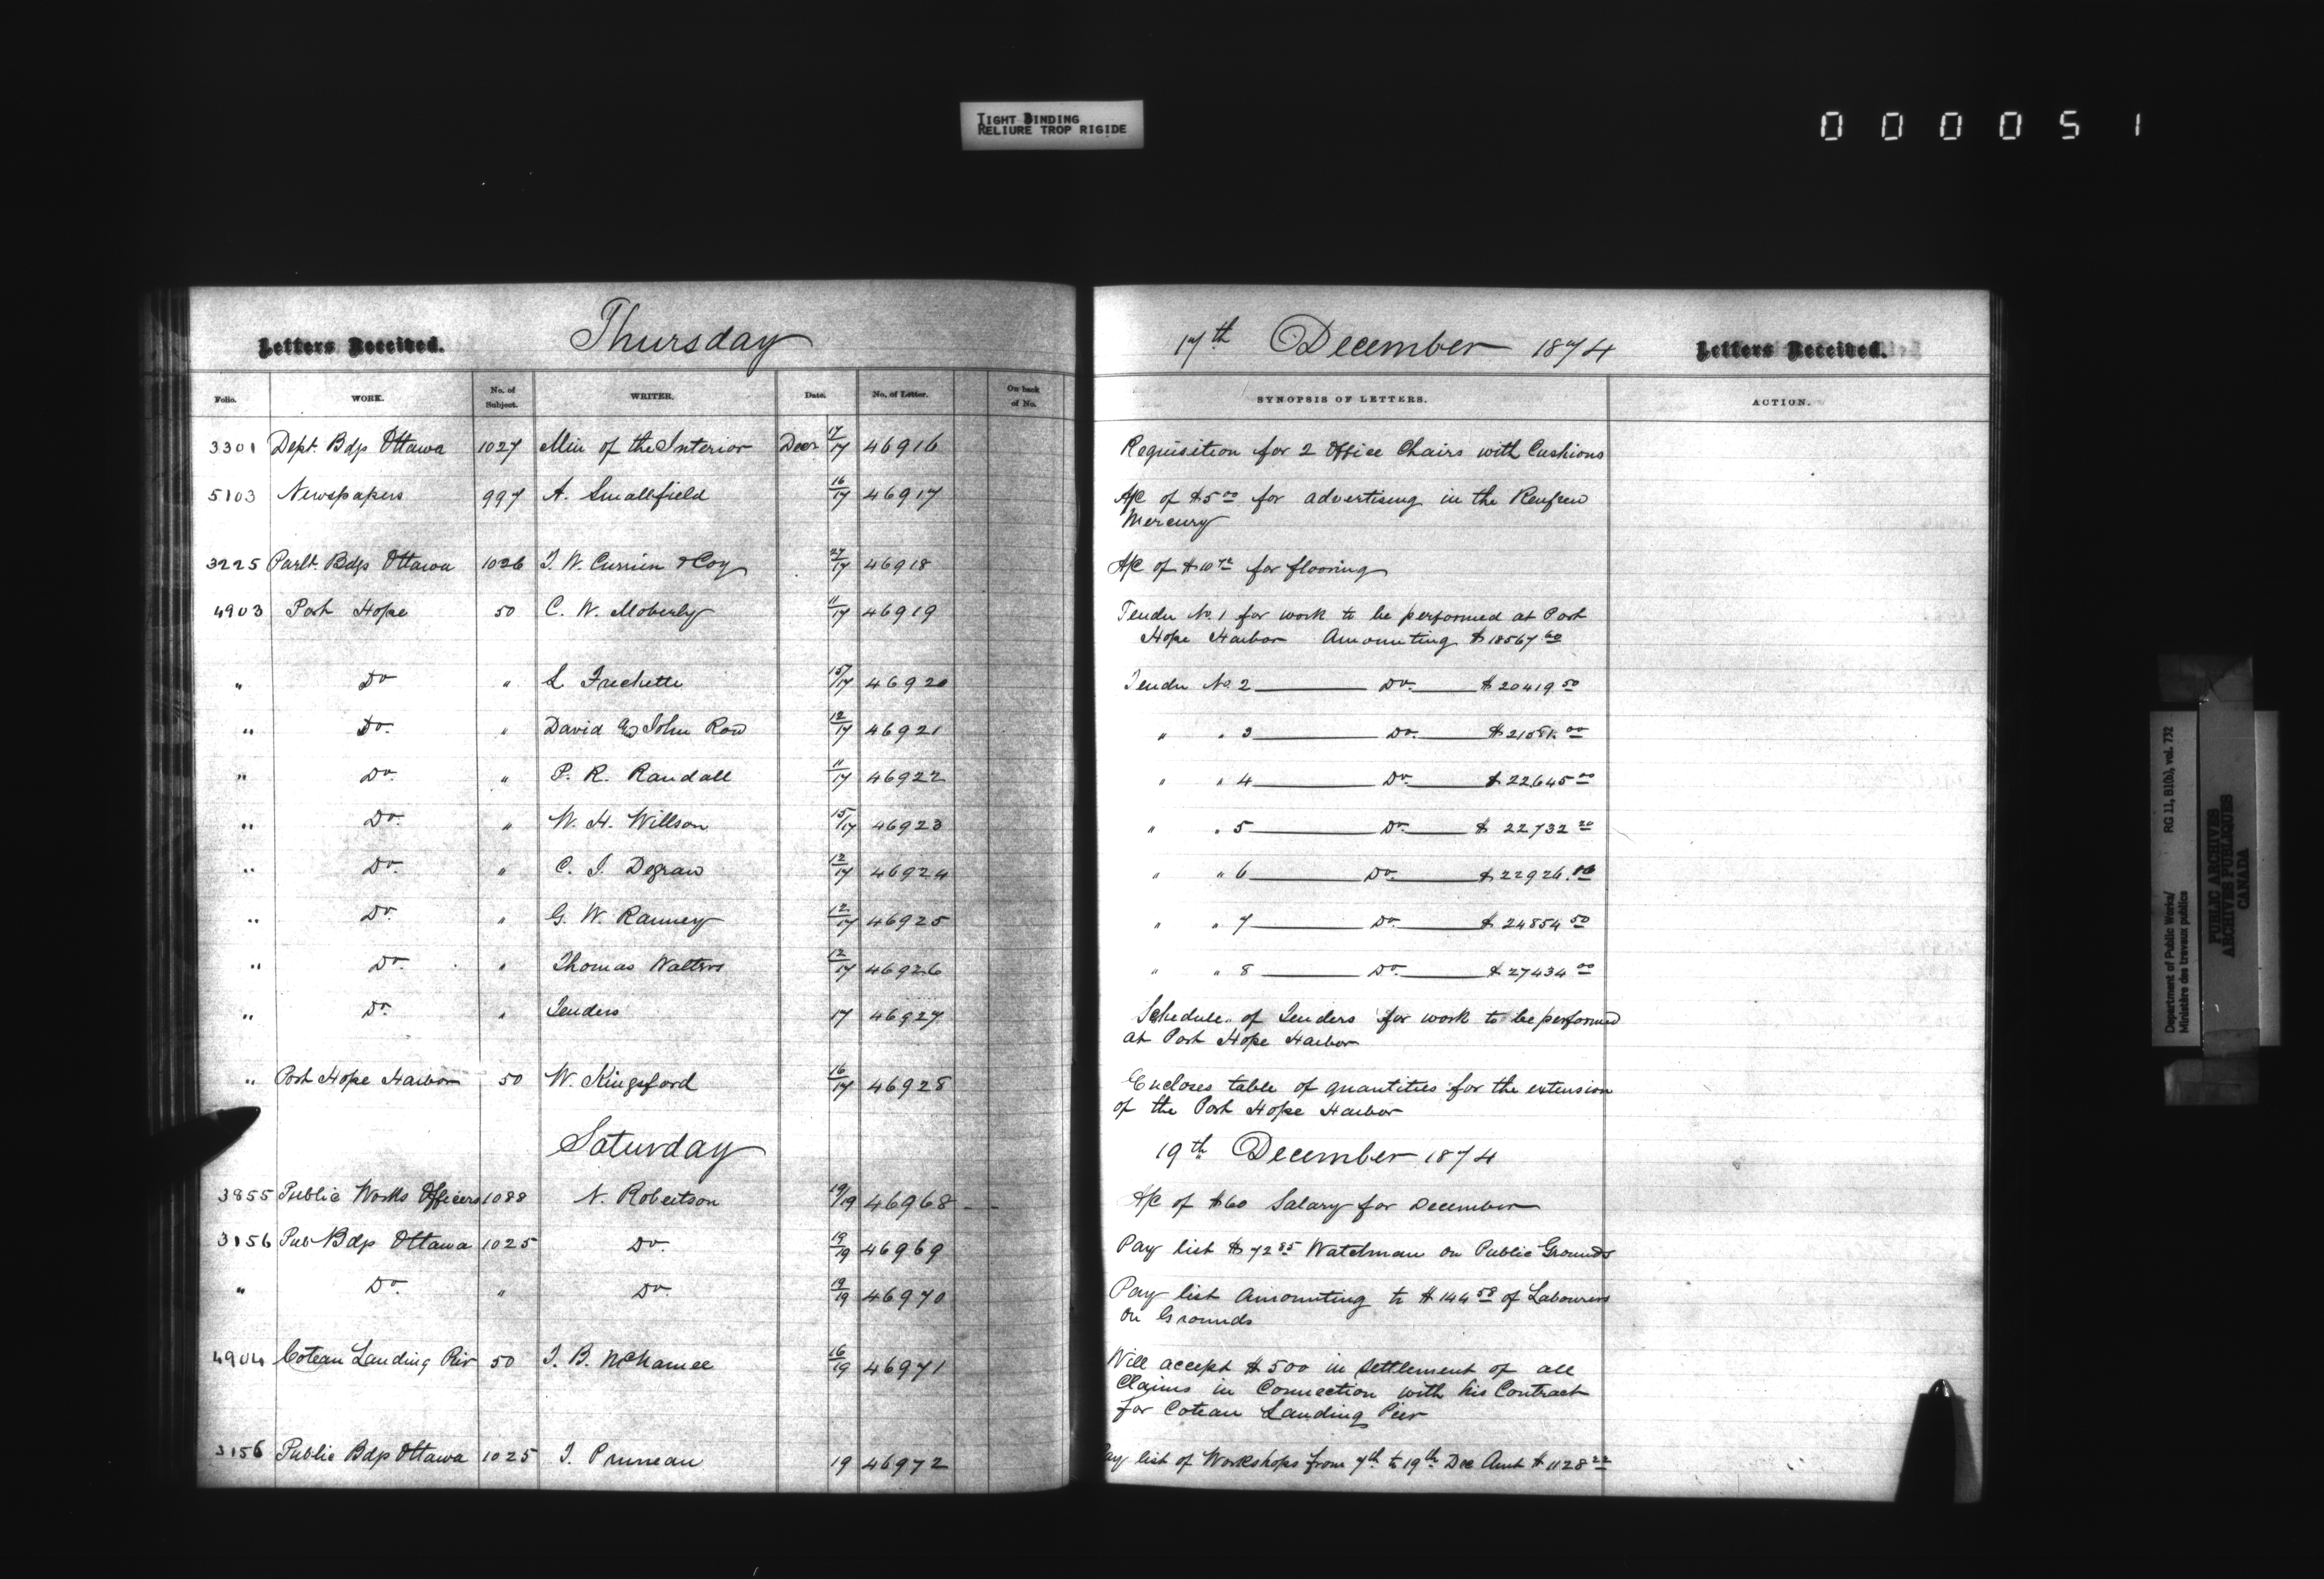 TIGHT BINDING
RELIURE TROP RIGIDE
000051
Letters Received. Thursday 17th December 1874 Letters Received.
Folio. WORK. No. of Subject. WRITER. Date. No. of Letter. On back of No. SYNOPSIS OF LETTERS. ACTION.
3301 Dept. Bdgs Ottawa 1027 Min of the Interior Decr 17/17 46916 Requisition for 2 Office Chairs with Cushions
5103 Newspapers 997 A. Smallfield 16/17 46917 A/C of $5.00 for advertising in the Renfrew
Mercury
3225 Parlt. Bdgs Ottawa 1026 T. W. Currier & Coy 27/17 46918 A/C of for flooring
4903 Port Hope 50 C. W. Moberly 11/17 46919 Tender No. 1 for work to be performed at Port
Hope Harbor Amounting $18567.60
" Do " L Frechette 15/17 46920 Tender No 2 Do. $20419.50
" Do. " David & John Row 12/17 46921 " " 3 Do. 
" Do. " P. R. Randall 11/17 46922 " " 4 Do. $22645.00
" Do. " W. H. Willson 15/17 46923 " " 5 Do. $22732.20
" Do. " C. J. Degraw 12/17 46924 " " 6 Do. $22926.
" Do. " G. W. Ranney 12/17 46925 " " 7 Do. $24854.50
" Do. " Thomas Walters 12/17 46926 " " 8 Do. $27434.00
" Do. " Tenders 17 46927 Schedule of Tenders for work to be performed
at Port Hope Harbor
" Port Hope Harbor 50 W. Kingsford 16/17 46928 Encloses table of quantities for the extension
of the Port Hope Harbor
Saturday 19th December 1874
3855 Public Works Officers 1088 N. Robertson 19/19 46968 A/C of $60 Salary for December
3156 Pub Bdgs Ottawa 1025 Do. 19/19 46969 Pay list $72.85 Watchman on Public Grounds
" Do. " Do. 19/19 46970 Pay list Amounting to $144.58 of Labourers
on Grounds
4904 Coteau Landing Pier 50 J. B. McNamee 16/19 46971 Will accept $500 in settlement of all
Claims in Connection with his Contract
for Coteau Landing Pier
3156 Public Bdgs Ottawa 1025 J. Pruneau 19 46972 Pay list of Workshops from 7th to 19th Dec Amt $1128.22
Department of Public Works/ RG 11, B1(b), vol. 732
Ministère des travaux publics
PUBLIC ARCHIVES
ARCHIVES PUBLIQUES
CANADA